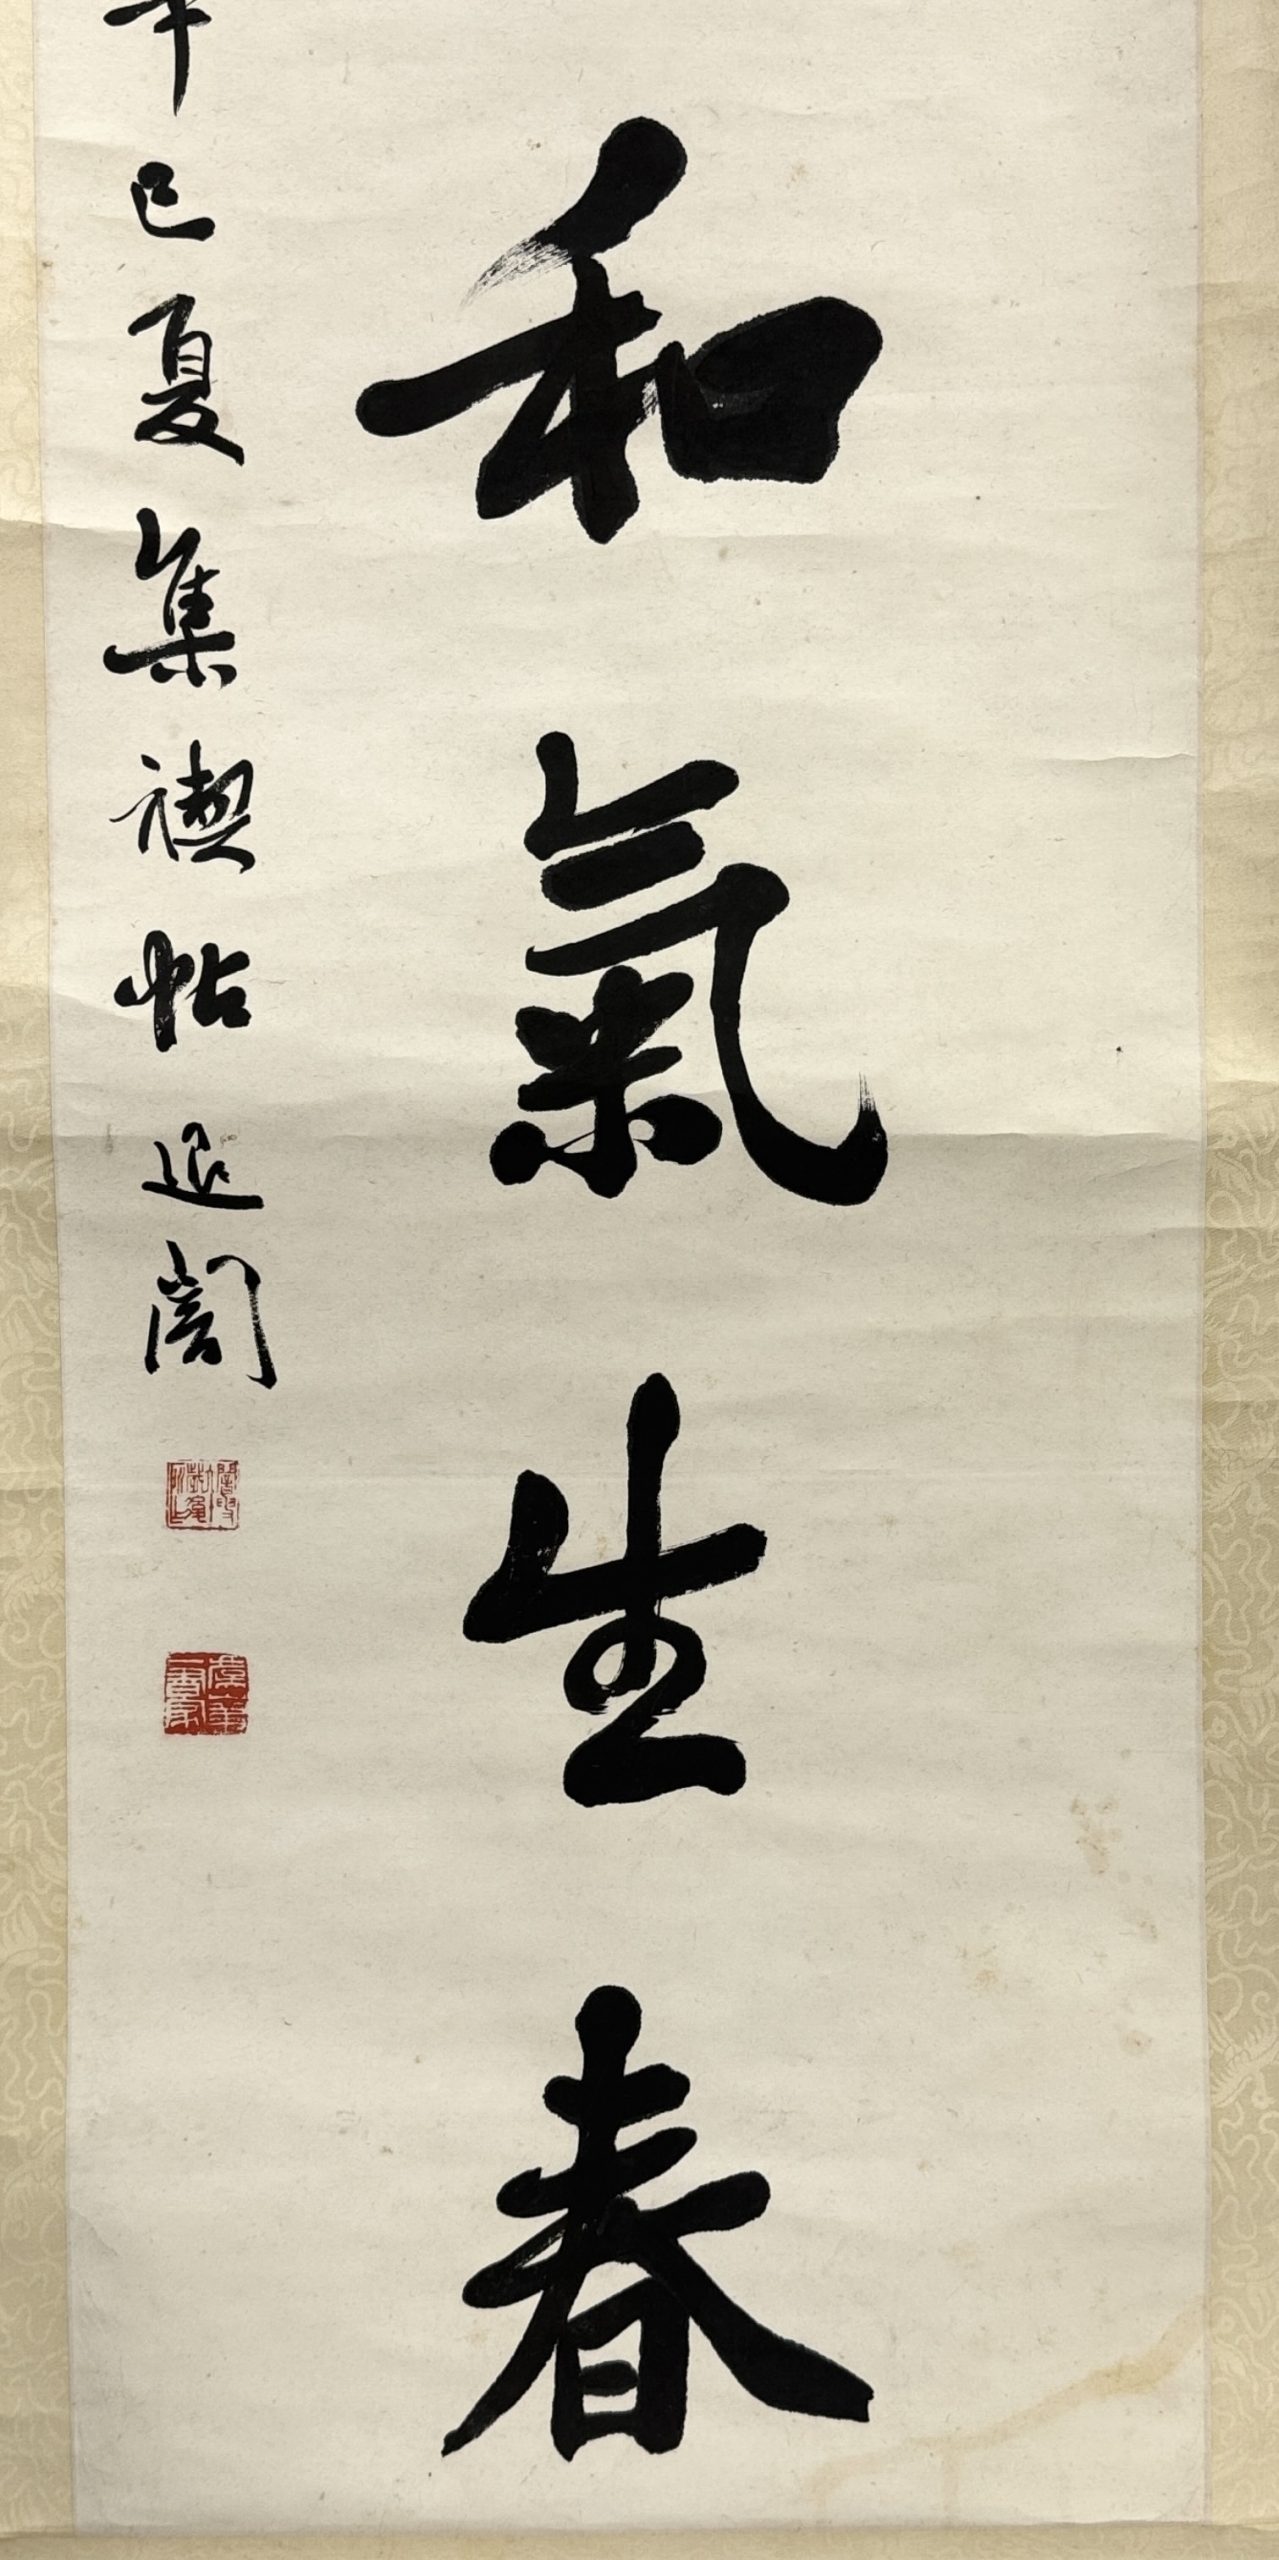 和氣生春
辛巳夏集禊帖退闇